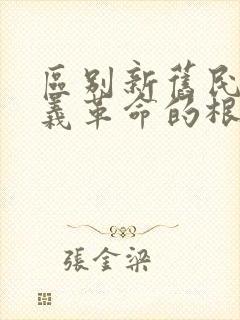 區别新舊民
義革命的根
張金梁